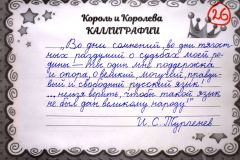 26
Король и Королева
КАЛЛИГРАФИИ
„Во дни сомнений, во дни тягост-
ных раздумий о судьбах моей ро-
дины – ты один мне поддержка
и опора, о великий, могучий, правди-
вый и свободный русский язык!
...нельзя верить, чтобы такой язык
не был дан великому народу!"
И. С. Тургенев